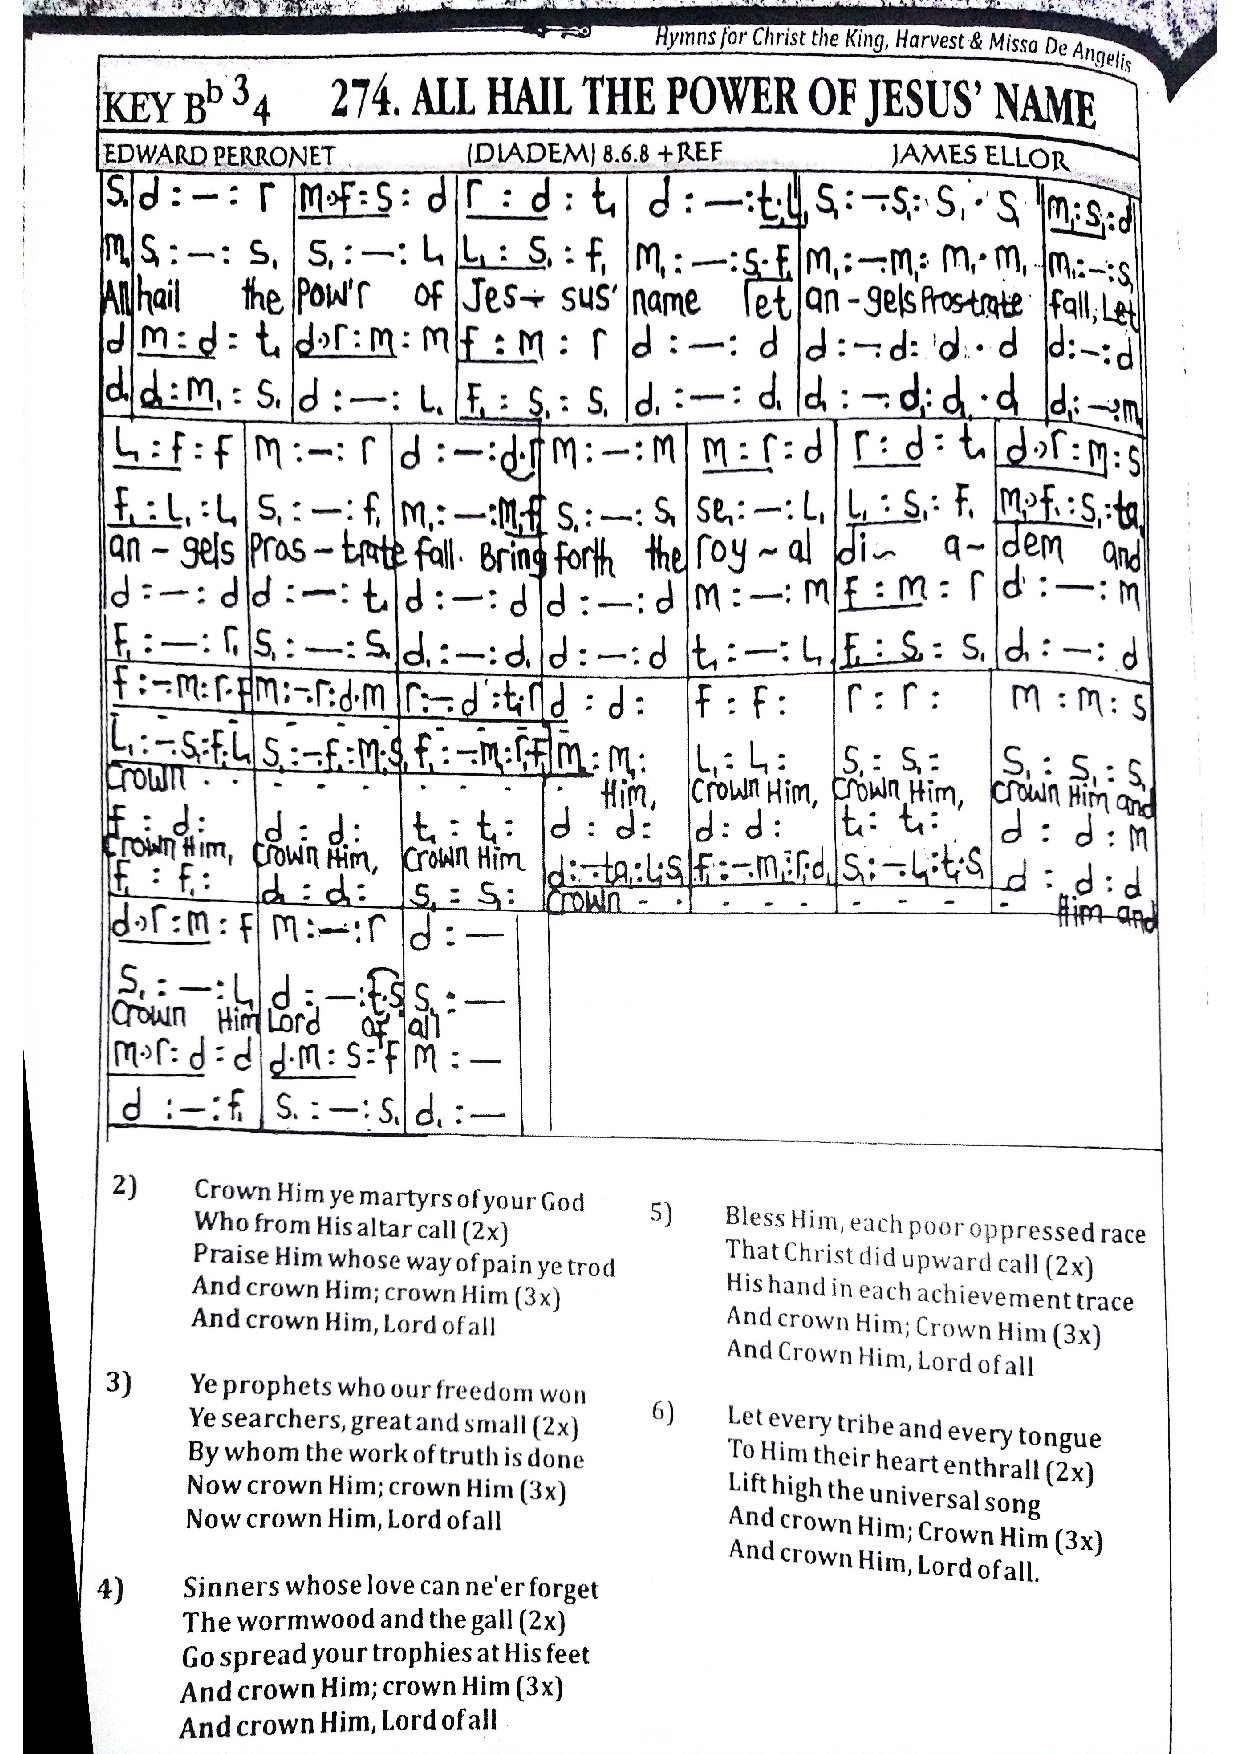 Hymns for Christ the King, Harvest & Missa De Angelis
KEY Bb 3 4 274. ALL HAIL THE POWER OF JESUS' NAME
EDWARD PERRONET (DIADEM) 8.6.8 +REF JAMES ELLOR
S, | d : — : r | m>f : s : d | r : d : t, | d : — : t,.l, | s, : —.s, : s, . s, | m, : s, : d
m, | s, : — : s, | s, : — : l, | l, : s, : f, | m, : — : s,.f, | m, : —.m, : m, . m, | m, : — : s,
All hail the Pow'r of Jes - sus' name let an-gels Prostrate fall, Let
d | m : d : t, | d>r : m : m | f : m : r | d : — : d | d : —.d : d . d | d : — : d
d, | d, : m, : s, | d : — : l, | f, : s, : s, | d, : — : d, | d, : —.d, : d, . d | d, : — : m,
l, : f : f | m : — : r | d : — : d.r | m : — : m | m : r : d | r : d : t, | d>r : m : s
f, : l, : l, | s, : — : f, | m, : — : m,.f, | s, : — : s, | se, : — : l, | l, : s, : f, | m,>f, : s, : ta,
an - gels Pros - trate fall. Bring forth the roy ~ al di ~ a - dem and
d : — : d | d : — : t, | d : — : d | d : — : d | m : — : m | f : m : r | d : — : m
f, : — : r, | s, : — : s, | d, : — : d, | d : — : d | t, : — : l, | f, : s, : s, | d, : — : d
f : —.m : r.f | m : —.r : d.m | r : —.d : t,.r | d : d : | f : f : | r : r : | m : m : s
l, : —.s, : f,.l, | s, : —.f, : m,.s, | f, : —.m, : r,.f, | m, : m, : | l, : l, : | s, : s, : | s, : s, : s,
Crown - - - - - - - - - - Him, Crown Him, Crown Him, Crown Him and
f : d : | d : d : | t, : t, : | d : d : | d : d : | t, : t, : | d : d : m
Crown Him, Crown Him, Crown Him
f, : f, : | d, : d, : | s, : s, : | d : —.ta, : l,.s, | f, : —.m, : r,.d, | s, : —.l, : t,.s, | d : d : d
Crown - - - - - - - - - - - Him and
d>r : m : f | m : — : r | d : —
s, : — : l, | d : — : t,.s, | s, : —
Crown Him Lord of all
m>r : d : d | d.m : s : f | m : —
d : — : f, | s, : — : s, | d, : —
2) Crown Him ye martyrs of your God
Who from His altar call (2x)
Praise Him whose way of pain ye trod
And crown Him; crown Him (3x)
And crown Him, Lord of all
3) Ye prophets who our freedom won
Ye searchers, great and small (2x)
By whom the work of truth is done
Now crown Him; crown Him (3x)
Now crown Him, Lord of all
4) Sinners whose love can ne'er forget
The wormwood and the gall (2x)
Go spread your trophies at His feet
And crown Him; crown Him (3x)
And crown Him, Lord of all
5) Bless Him, each poor oppressed race
That Christ did upward call (2x)
His hand in each achievement trace
And crown Him; Crown Him (3x)
And Crown Him, Lord of all
6) Let every tribe and every tongue
To Him their heart enthrall (2x)
Lift high the universal song
And crown Him; Crown Him (3x)
And crown Him, Lord of all.